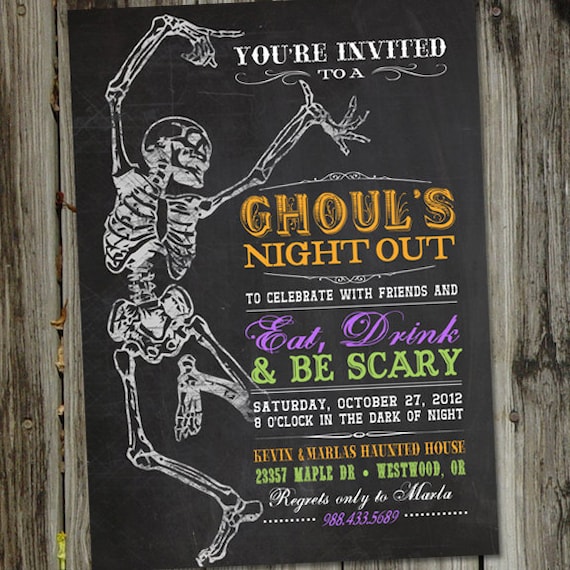 YOU'RE INVITED
TO A
GHOUL'S
NIGHT OUT
TO CELEBRATE WITH FRIENDS AND
Eat, Drink
& BE SCARY
SATURDAY, OCTOBER 27, 2012
8 O'CLOCK IN THE DARK OF NIGHT
KEVIN & MARLAS HAUNTED HOUSE
23357 MAPLE DR • WESTWOOD, OR
Regrets only to Marla
988.433.5689